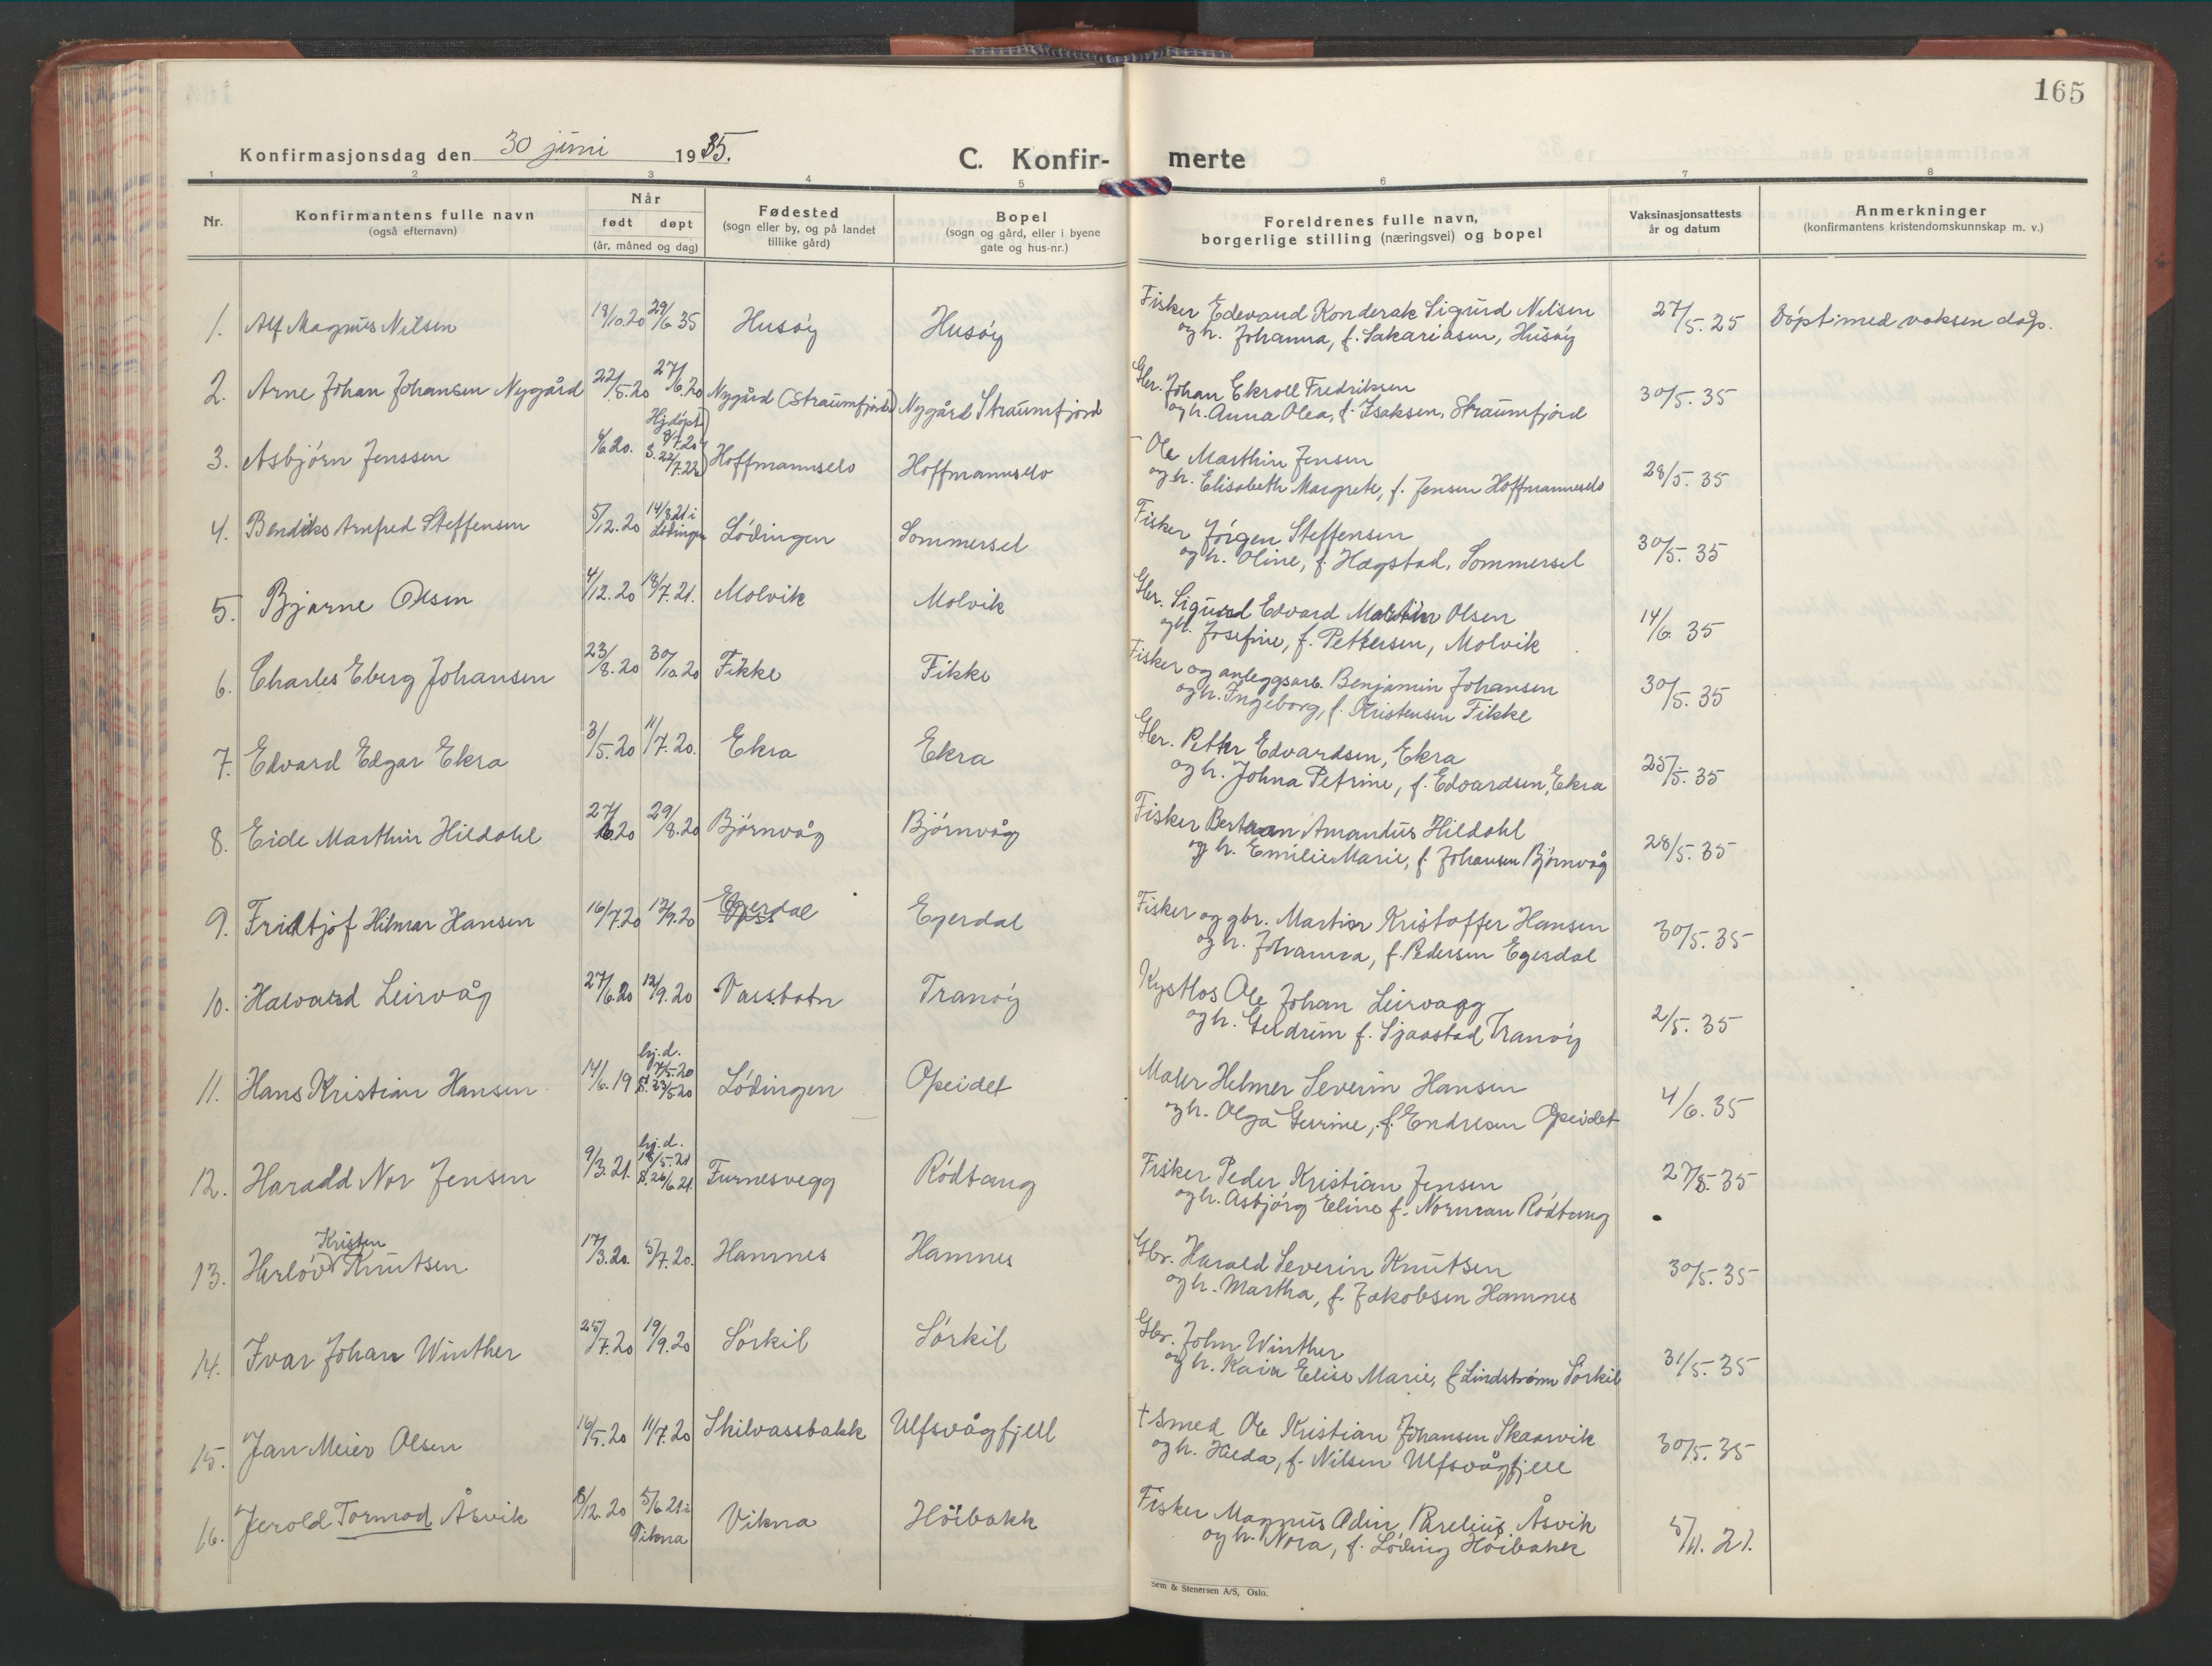 165
Konfirmasjonsdag den 30 juni 1935.
C. Konfir-merte
1 2 3 4 5 6 7 8
Nr.
Konfirmantens fulle navn
(også efternavn)
Når
født døpt
(år, måned og dag)
Fødested
(sogn eller by, og på landet
tillike gård)
Bopel
(sogn og gård, eller i byene
gate og hus-nr.)
Foreldrenes fulle navn,
borgerlige stilling (næringsvei) og bopel
Vaksinasjonsattests
år og datum
Anmerkninger
(konfirmantens kristendomskunnskap m. v.)
1. Alf Magnus Nilsen 18/10.20 29/6 35 Husöy Husöy
Fisker Edevand Konderak Sigurd Nilsen
og h. Johanna, f. Sakariasen, Husöy
27/5. 25 Döpt med voksen dåp.
2. Arne Johan Johansen Nygård 22/5.20 27/6.20 Nygård (Straumfjord) Nygård Straumfjord
Gbr. Johan Ekroll Fredriksen
og h. Anna Olea, f. Isaksen, Straumfjord
30/5. 35
3. Asbjörn Jenssen 4/6 20. Hjdöpt 8/7.20 S. 22/7.22 Hoffmannselv Hoffmannselv
- Ole Marthin Jensen
og h. Elisabeth Margrete, f. Jensen Hoffmannselv
28/5. 35
4. Bendiks Arnfred Steffensen 5/12.20 14/8 21 i Lödingen Lödingen Sommersel
Fisker Jörgen Steffensen
og h. Oline, f. Hagstad, Sommersel
30/5. 35
5. Bjarne Olsen 4/12.20 18/7.21. Molvik Molvik
Gbr. Sigurd Edvard Martin Olsen
og h. Josefine, f. Pettersen, Molvik
14/6. 35
6. Charles Eberg Johansen 23/8.20 30/10.20 Fikke Fikke
Fisker og anleggsarb. Benjamin Johansen
og h. Ingeborg, f. Kristensen Fikke
30/5. 35
7. Edvard Edgar Ekra 3/5.20 11/7.20. Ekra Ekra
Gbr. Petter Edvardsen, Ekra
og h. Johna Petrine, f. Edvardsen, Ekra
25/5. 35
8. Eide Marthin Hildahl 27/6.20 29/8.20 Björnvåg Björnvåg
Fisker Amandus Hildahl
og h. Emilie Marie, f. Johansen Björnvåg
28/5. 35
9. Fridtjof Hilmar Hansen 16/7.20 12/9.20 Egerdal Egerdal
Fisker og gbr. Martin Kristoffer Hansen
og h. Johanna, f. Pedersen Egerdal
30/5. 35
10. Halvard Leirvåg 27/6.20 12/9.20 Vassbotn Tranöy
Kystlos Ole Johan Leirvagg
og h. Guldrun f. Sjaastad Tranöy
2/5. 35
11. Hans Kristian Hansen 14/6.19 hj.d. 17/5.20 S. 23/5.20 Lödingen Opeidet
Maler Helmer Severin Hansen
og h. Olga Gurine, f. Endresen Opeidet
4/6. 35
12. Harald Nor Jensen 9/3.21. hj.d. 18/5.21 S. 26/6 21. Furnesvegg Rödtang
Fisker Peder Kristian Jensen
og h. Asbjörg Eline f. Norman Rödtang
27/5. 35
13. Herlöv Kristen Knutsen 17/3.20. 5/7.20. Hamnes Hamnes
Gbr. Harald Severin Knutsen
og h. Martha, f. Jakobsen Hamnes
30/5. 35
14. Ivar Johan Winther 25/7.20 19/9.20 Sörkil Sörkil
Gbr. John Winther
og h. Kaia Elise Marie, f. Lindström Sörkil
31/5. 35
15. Jan Meier Olsen 16/5.20 11/7.20 Skilvassbakk Ulfsvågfjell
† Smed Ole Kristian Johansen Skaarvik
og h. Hilda, f. Nilsen Ulfsvågfjell
30/5. 35
16. Jerold Tormod Åsvik 8/12.20 5/6 21 i Vikna Vikna Höibakk
Fisker Magnus Odin Parelius Åsvik
og h. Nora, f. Löding Höibakk
5/11. 21.
Sem & Stenersen A/S, Oslo.